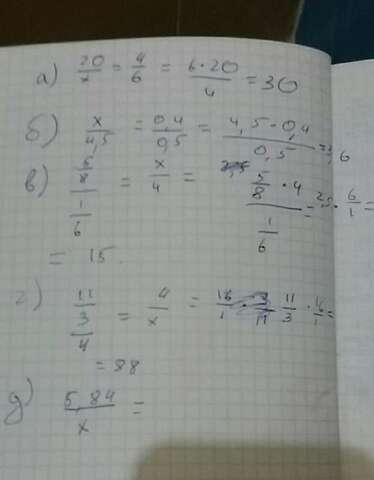 а) 20/x = 4/6 = 6·20/4 = 30
б) x/4,5 = 0,4/0,5 = 4,5·0,4/0,5 = 3,6
в) 5/8 / 1/6 = x/4 = 5/8 · 4 / 1/6 = 2,5 · 6/1 =
= 15.
г) 11/3/4 = 4/x = 11/3 · 6/1 =
= 88
д) 5,84/x =